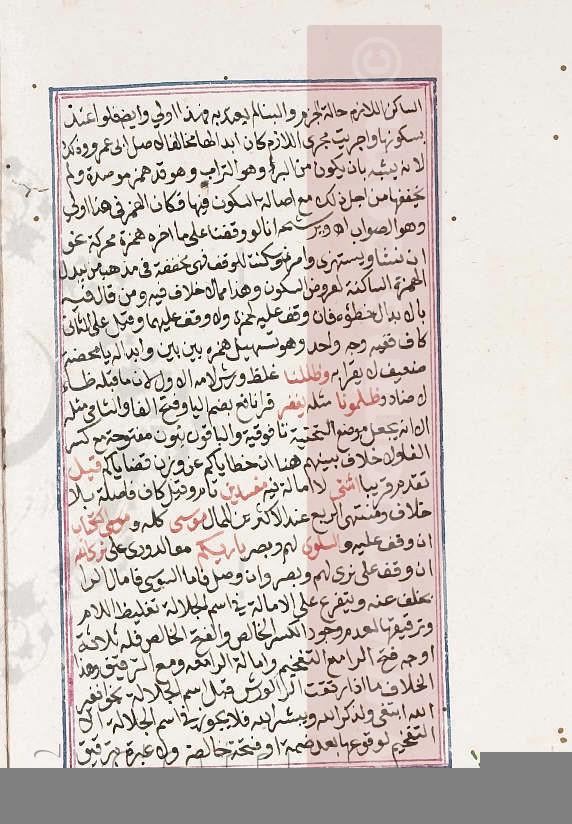 الساكن اللازم حالة الجزم والبنا لم يعتد به فهذا اولى وايضا فلو اعتد
بسكونها واجريت مجرى اللازم كان ابدالها مخالفا لاصل ابى عمرو وذلك
لانه يشبه بان يكون من البرا وهو التراب وهو قد همز موصدة ولم
يخففها من اجل ذلك مع اصالة السكون فيها فكان الهمز في هذا اولى
وهو الصواب اه ويرشحه انا لو وقفنا على ما اخره همزة محركة نحو
ان نشا ويستهزئ وامرئ وسكنت للوقف فهى محققة في مذهب من يبدل
الهمزة الساكنة لعروض السكون وهذا مما لا خلاف فيه ومن قال فيه
بالابدال خطؤه فان وقف عليه لحمزة ولا وقف عليهما وقيل على الثانى
كاف ففيه وجه واحد وهو تسهيل همزه بين بين وابداله يا محضة
ضعيف لا يقرا به وظللنا غلظ ورش لامه الاول لان ما قبله ظا
لا ضاد وظلمونا مثله يغفر قرا نافع بضم اليا وفتح الفا والشامى مثله
الا انه يجعل موضع التحتية تا فوقية والباقون بنون مفتوحة مع كسر
الفا ولا خلاف بينهم هنا ان خطاياكم على وزن قضاياكم قيل
تقدم قريبا اثنتى لا امالة فيه مفسدين تام وقيل كاف فاصلة بلا
خلاف ومنتهى الربع عند الاكثرين الممال موسى كله و موسى الكتاب
ان وقف عليه والسلوى لهم وبصر بارئكم معا لدورى على نرى الله
ان وقف على نرى لهم وبصر وان وصل فاما السوسى فامال الرا
بخلف عنه ويتفرع على الامالة في اسم الجلالة تغليظ اللام
وترقيقها لعدم وجود الكسر الخالص والفتح الخالص فله ثلاثة
اوجه فتح الرا مع التفخيم وامالة الرا معه ومع الترقيق وهذا
الخلاف ما اذا رققت الرا لورش قبل اسم الجلالة نحو افغير
الله ابتغى ولذكر الله ويبشر الله فلا يجوز في اسم الجلالة الا
التفخيم لوقوعها بعد ضمة او فتحة خالصة ولا عبرة بترقيق